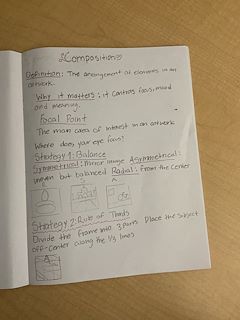 Composition
Definition: The arrangement of elements in an
artwork.
Why it matters: it controls focus, mood
and meaning.
Focal Point
The main area of interest in an artwork
Where does your eye focus?
Strategy 1: Balance
Symmetrical: Mirror image Asymmetrical:
uneven but balanced Radial: From the center
Strategy 2: Rule of Thirds
Divide the frame into 3 parts Place the subject
off-center along the 1/3 lines